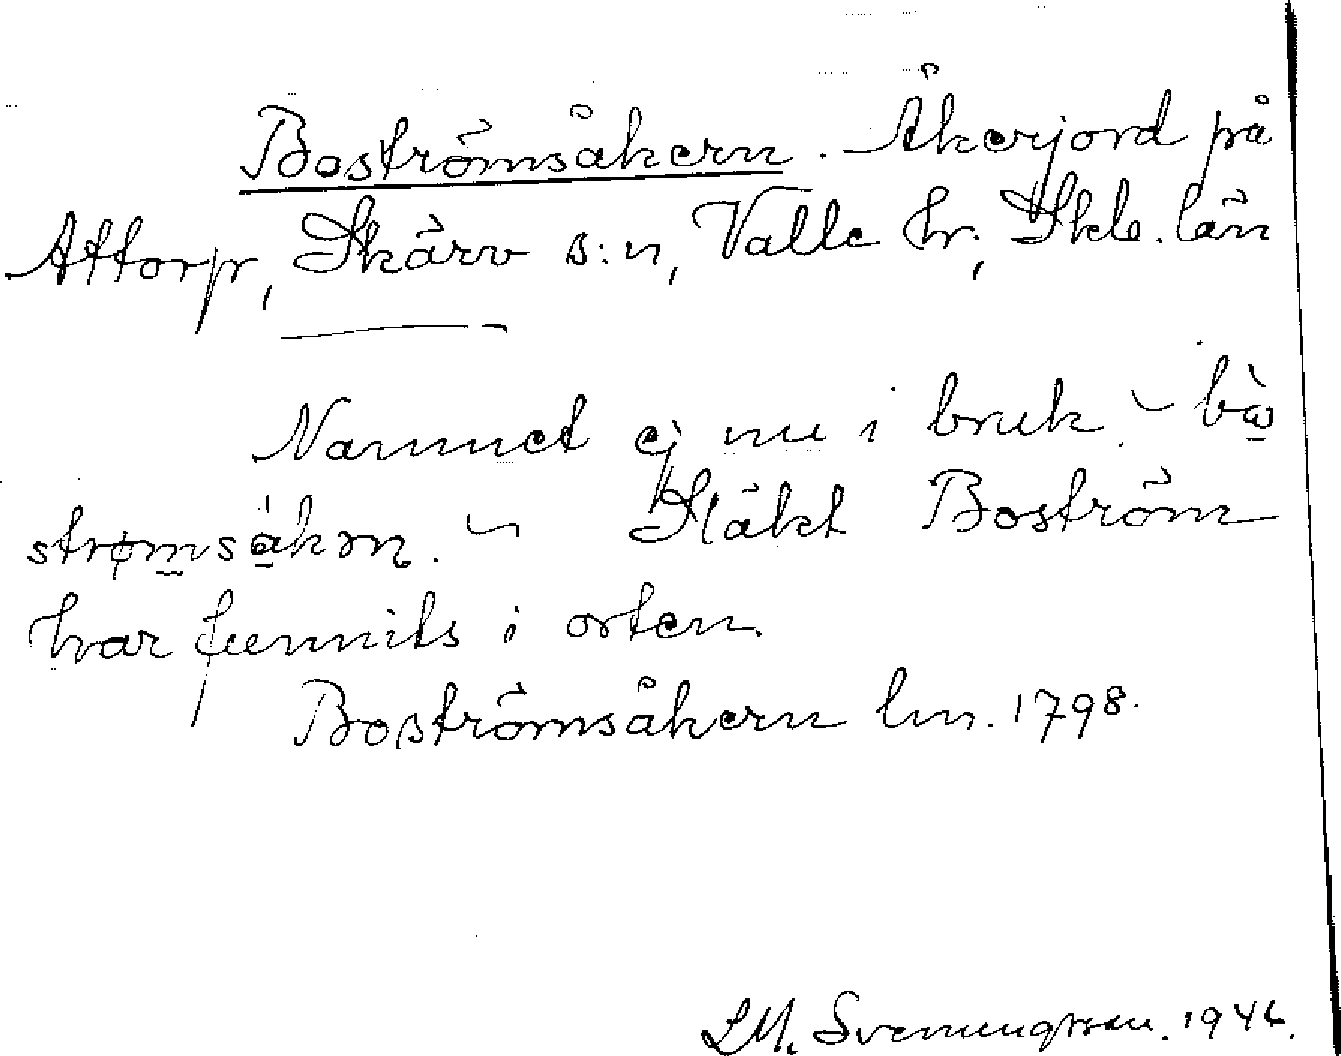 Boströmsåkern. Åkerjord på
Attorp, Skärv s:n, Valle hr, Skb. län
Namnet ej nu i bruk. ~
~ Släkt Boström
har funnits i orten.
Boströmsåkern lm. 1798.
L.M. Svenungsson. 1946.